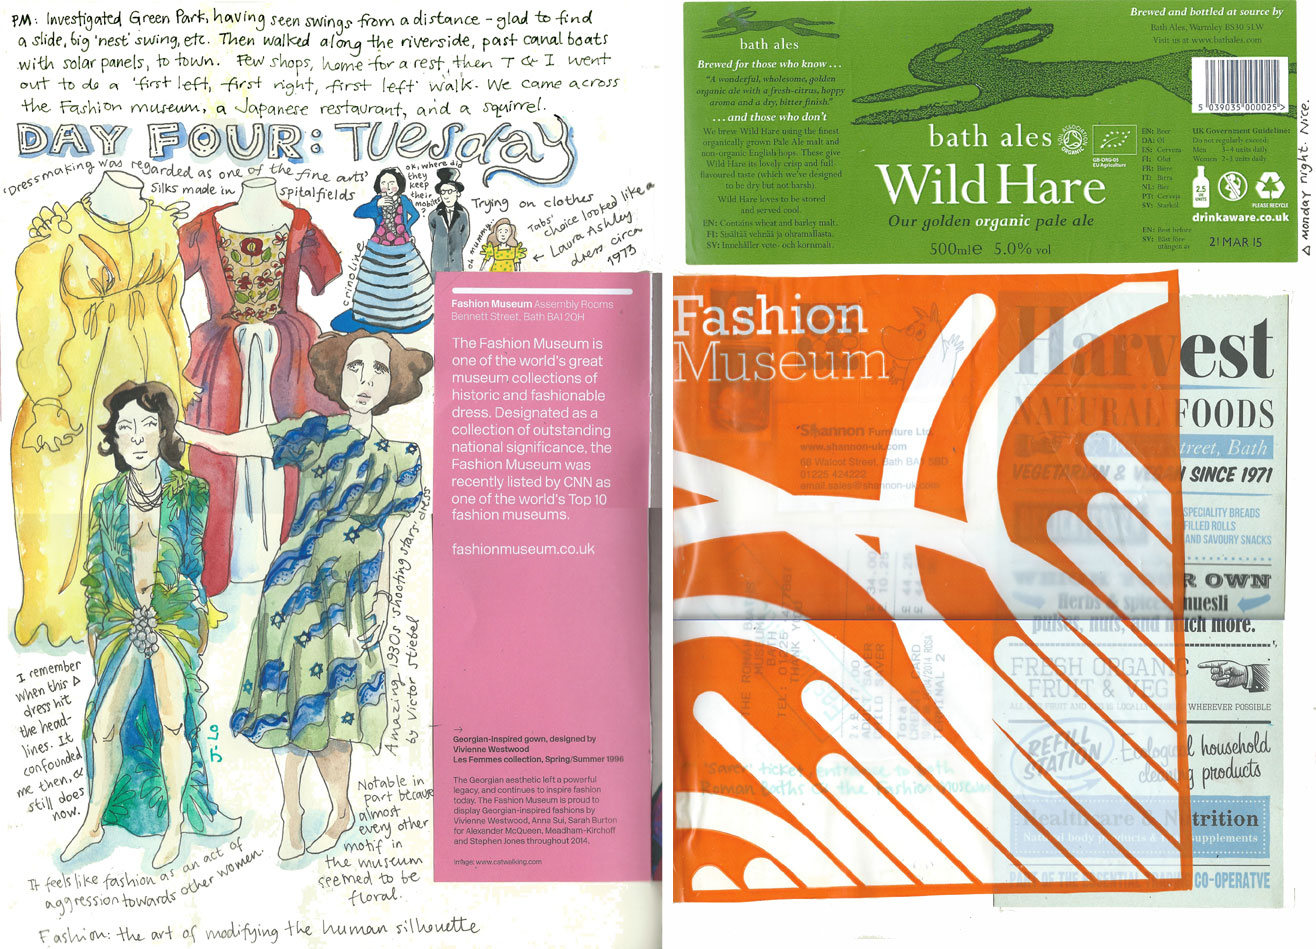 PM: Investigated Green Park, having seen swings from a distance – glad to find
a slide, big 'nest' swing, etc. Then walked along the riverside, past canal boats
with solar panels, to town. Few shops, home for a rest, then T & I went
out to do a 'first left, first right, first left' walk. We came across
the Fashion museum, a Japanese restaurant, and a squirrel.
DAY FOUR: Tuesday
'Dressmaking was regarded as one of the fine arts'
Silks made in Spitalfields
OK, where did
they
keep
their
mobiles
?
Crinoline
Trying on clothes
oh mummy
Tabs'
choice looked like a
← Laura Ashley
dress circa
1973
I remember
when this
dress hit
the head-
lines. It
confounded
me then, &
still does
now.
J-Lo
Amazing 1930s 'shooting stars' dress
by Victor Stiebel
Notable in
part because
almost
every other
motif in
the museum
seemed to be
floral.
It feels like fashion as an act of
aggression towards other women.
Fashion: the art of modifying the human silhouette
Fashion Museum Assembly Rooms
Bennett Street, Bath BA1 2QH
The Fashion Museum is
one of the world's great
museum collections of
historic and fashionable
dress. Designated as a
collection of outstanding
national significance, the
Fashion Museum was
recently listed by CNN as
one of the world's Top 10
fashion museums.
fashionmuseum.co.uk
→
Georgian-Inspired gown, designed by
Vivienne Westwood
Les Femmes collection, Spring/Summer 1996
The Georgian aesthetic left a powerful
legacy, and continues to inspire fashion
today. The Fashion Museum is proud to
display Georgian-inspired fashions by
Vivienne Westwood, Anna Sui, Sarah Burton
for Alexander McQueen, Meadham-Kirchoff
and Stephen Jones throughout 2014.
Image: www.catwalking.com
bath ales
Brewed for those who know . . .
"A wonderful, wholesome, golden
organic ale with a fresh-citrus, hoppy
aroma and a dry, bitter finish."
. . . and those who don't
We brew Wild Hare using the finest
organically grown Pale Ale malt and
non-organic English hops. These give
Wild Hare its lovely crisp and full-
flavoured taste (which we've designed
to be dry but not harsh).
Wild Hare loves to be stored
and served cool.
EN: Contains wheat and barley malt.
FI: Sisältää vehnää ja ohramallasta.
SV: Innehåller vete- och kornmalt.
bath ales
Wild Hare
Our golden organic pale ale
500ml e 5.0% vol
SOIL ASSOCIATION
ORGANIC
GB-ORG-05
EU Agriculture
Brewed and bottled at source by
Bath Ales, Warmley BS30 5LW
Visit us at www.bathales.com
5 039035 000025 >
EN: Beer
DA: Øl
ES: Cerveza
FI: Olut
FR: Bière
IT: Birra
NL: Bier
PT: Cerveja
SV: Starköl
EN: Best before
SV: Bäst före
utgången av
UK Government Guidelines
Do not regularly exceed:
Men 3–4 units daily
Women 2–3 units daily
2.5
UK
UNITS
PLEASE RECYCLE
drinkaware.co.uk
21 MAR 15
Monday night. Nice.
Fashion
Museum
Shannon Furniture Ltd
www.shannon-uk.com
68 Walcot Street, Bath BA1 5BD
01225 424222
email.sales@shannon-uk.com
THE ROMAN BATHS
MUSEUM
BATH
THANK YOU
34.00
10.25
44.25
Total
CREDIT CARD
TERMINAL 2
'Saver' ticket, entrance to both
Roman baths & the fashion museum
Harvest
NATURAL FOODS
Street, Bath
VEGETARIAN & VEGAN SINCE 1971
SPECIALITY BREADS
FILLED ROLLS
AND SAVOURY SNACKS
YOUR OWN
Herbs & spices, muesli
pulses, nuts, and much more.
FRESH ORGANIC
FRUIT & VEG
WHEREVER POSSIBLE
REFILL
STATION
Ecological household
cleaning products
Healthcare & Nutrition
Natural body products & supplements
PART OF THE ESSENTIAL TRADING CO-OPERATVE